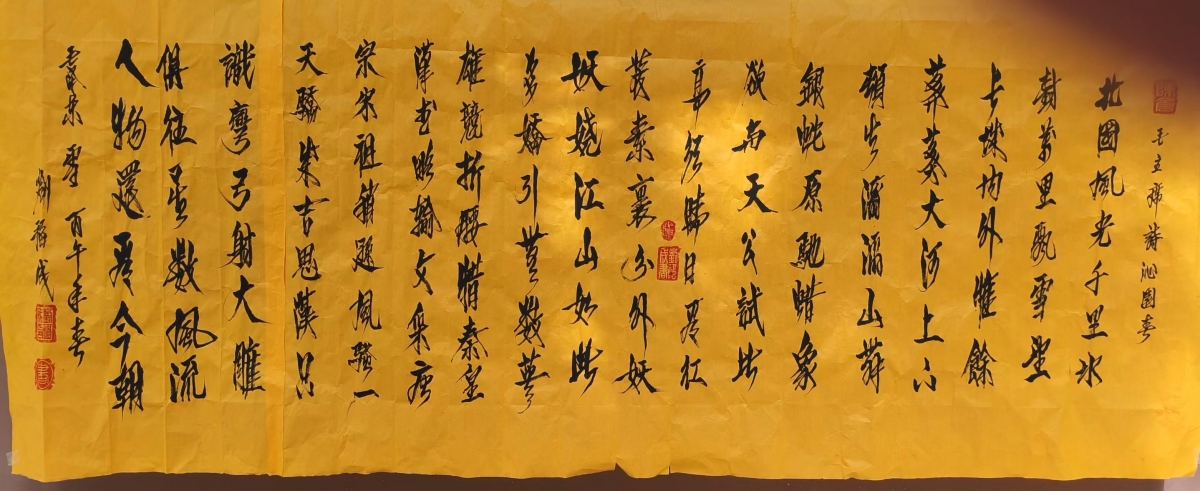 毛主席詩沁園春
北國風光千里冰
封萬里飄雪望
长城内外惟餘
莽莽大河上下
頓失滔滔山舞
銀蛇原馳蜡象
欲与天公試比
高須晴日看红
裝素裹分外妖
妖娆江山如此
多嬌引無數英
雄競折腰惜秦皇
漢武略輸文采唐
宗宋祖稍遜風騷一
天驕成吉思漢只
識彎弓射大雕
俱往矣数風流
人物還看今朝
雪 丙午年春